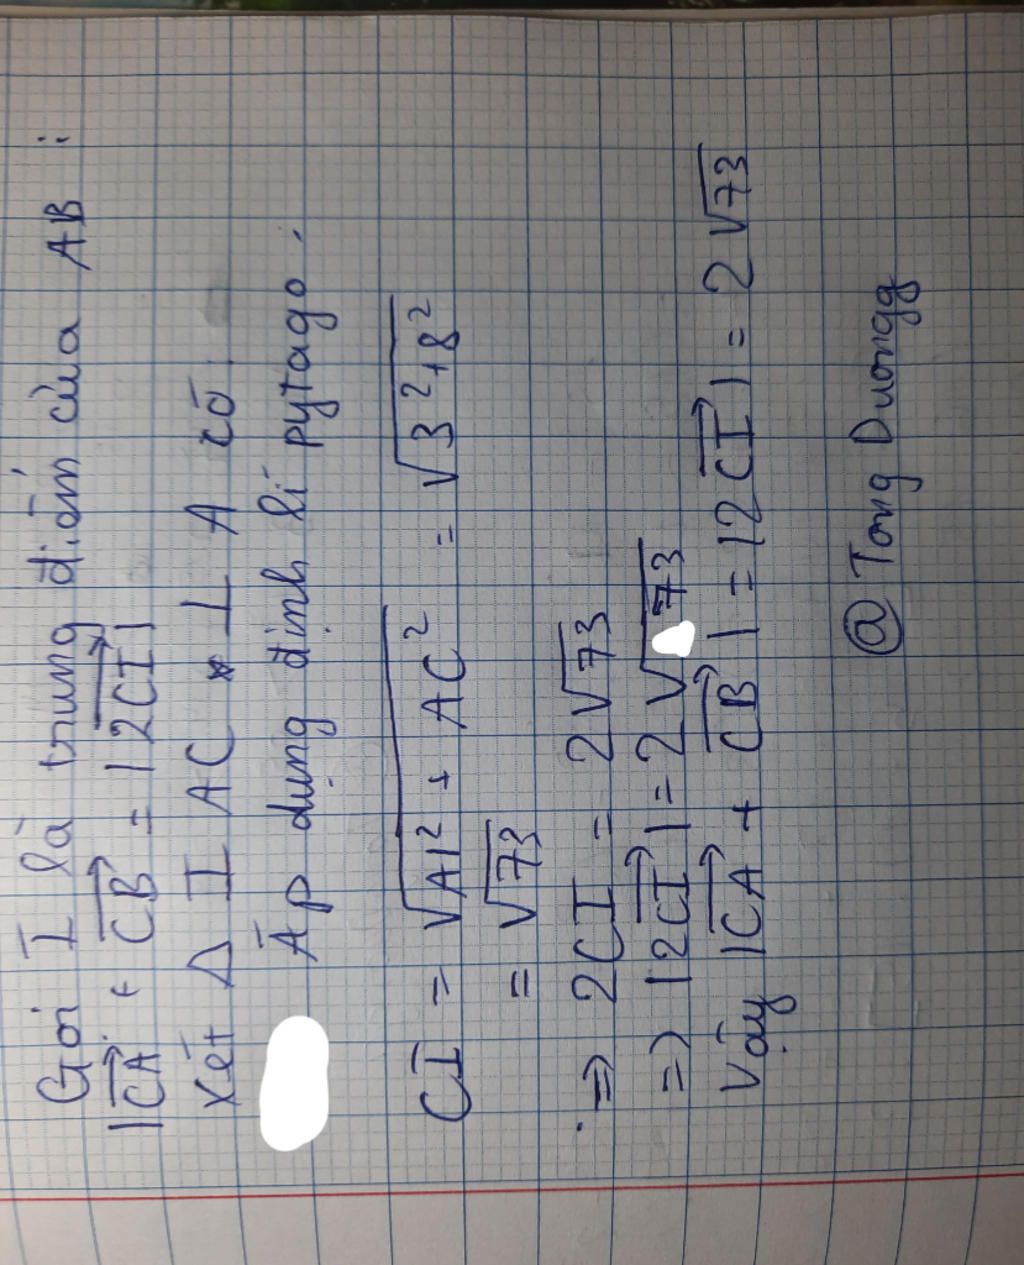 Gọi I là trung điểm của AB :
|CA→ + CB→ = |2CI→|
Xét Δ I AC ⊥ A có.
Áp dụng định lí pytago.
CI = √(AI² + AC²) = √(3² + 8²)
= √73
=> 2CI = 2√73
=> |2CI→| = 2√73
Vậy |CA→ + CB→| = |2CI→| = 2√73
@ Tong Duongg